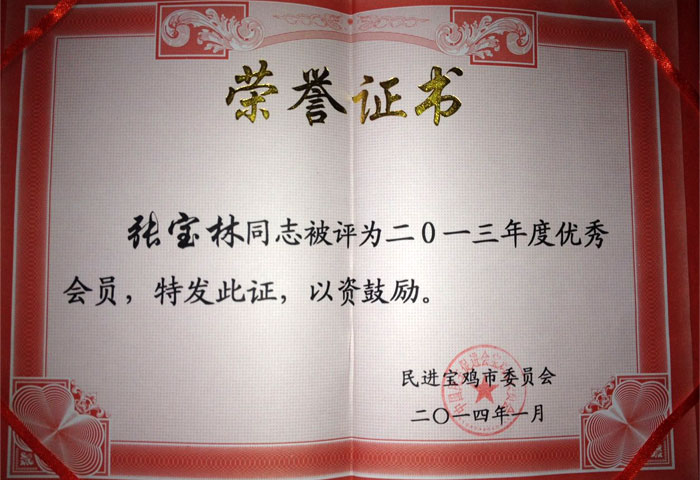 荣誉证书
张宝林同志被评为二0一三年度优秀
会员，特发此证，以资鼓励。
民进宝鸡市委员会
二〇一四年一月